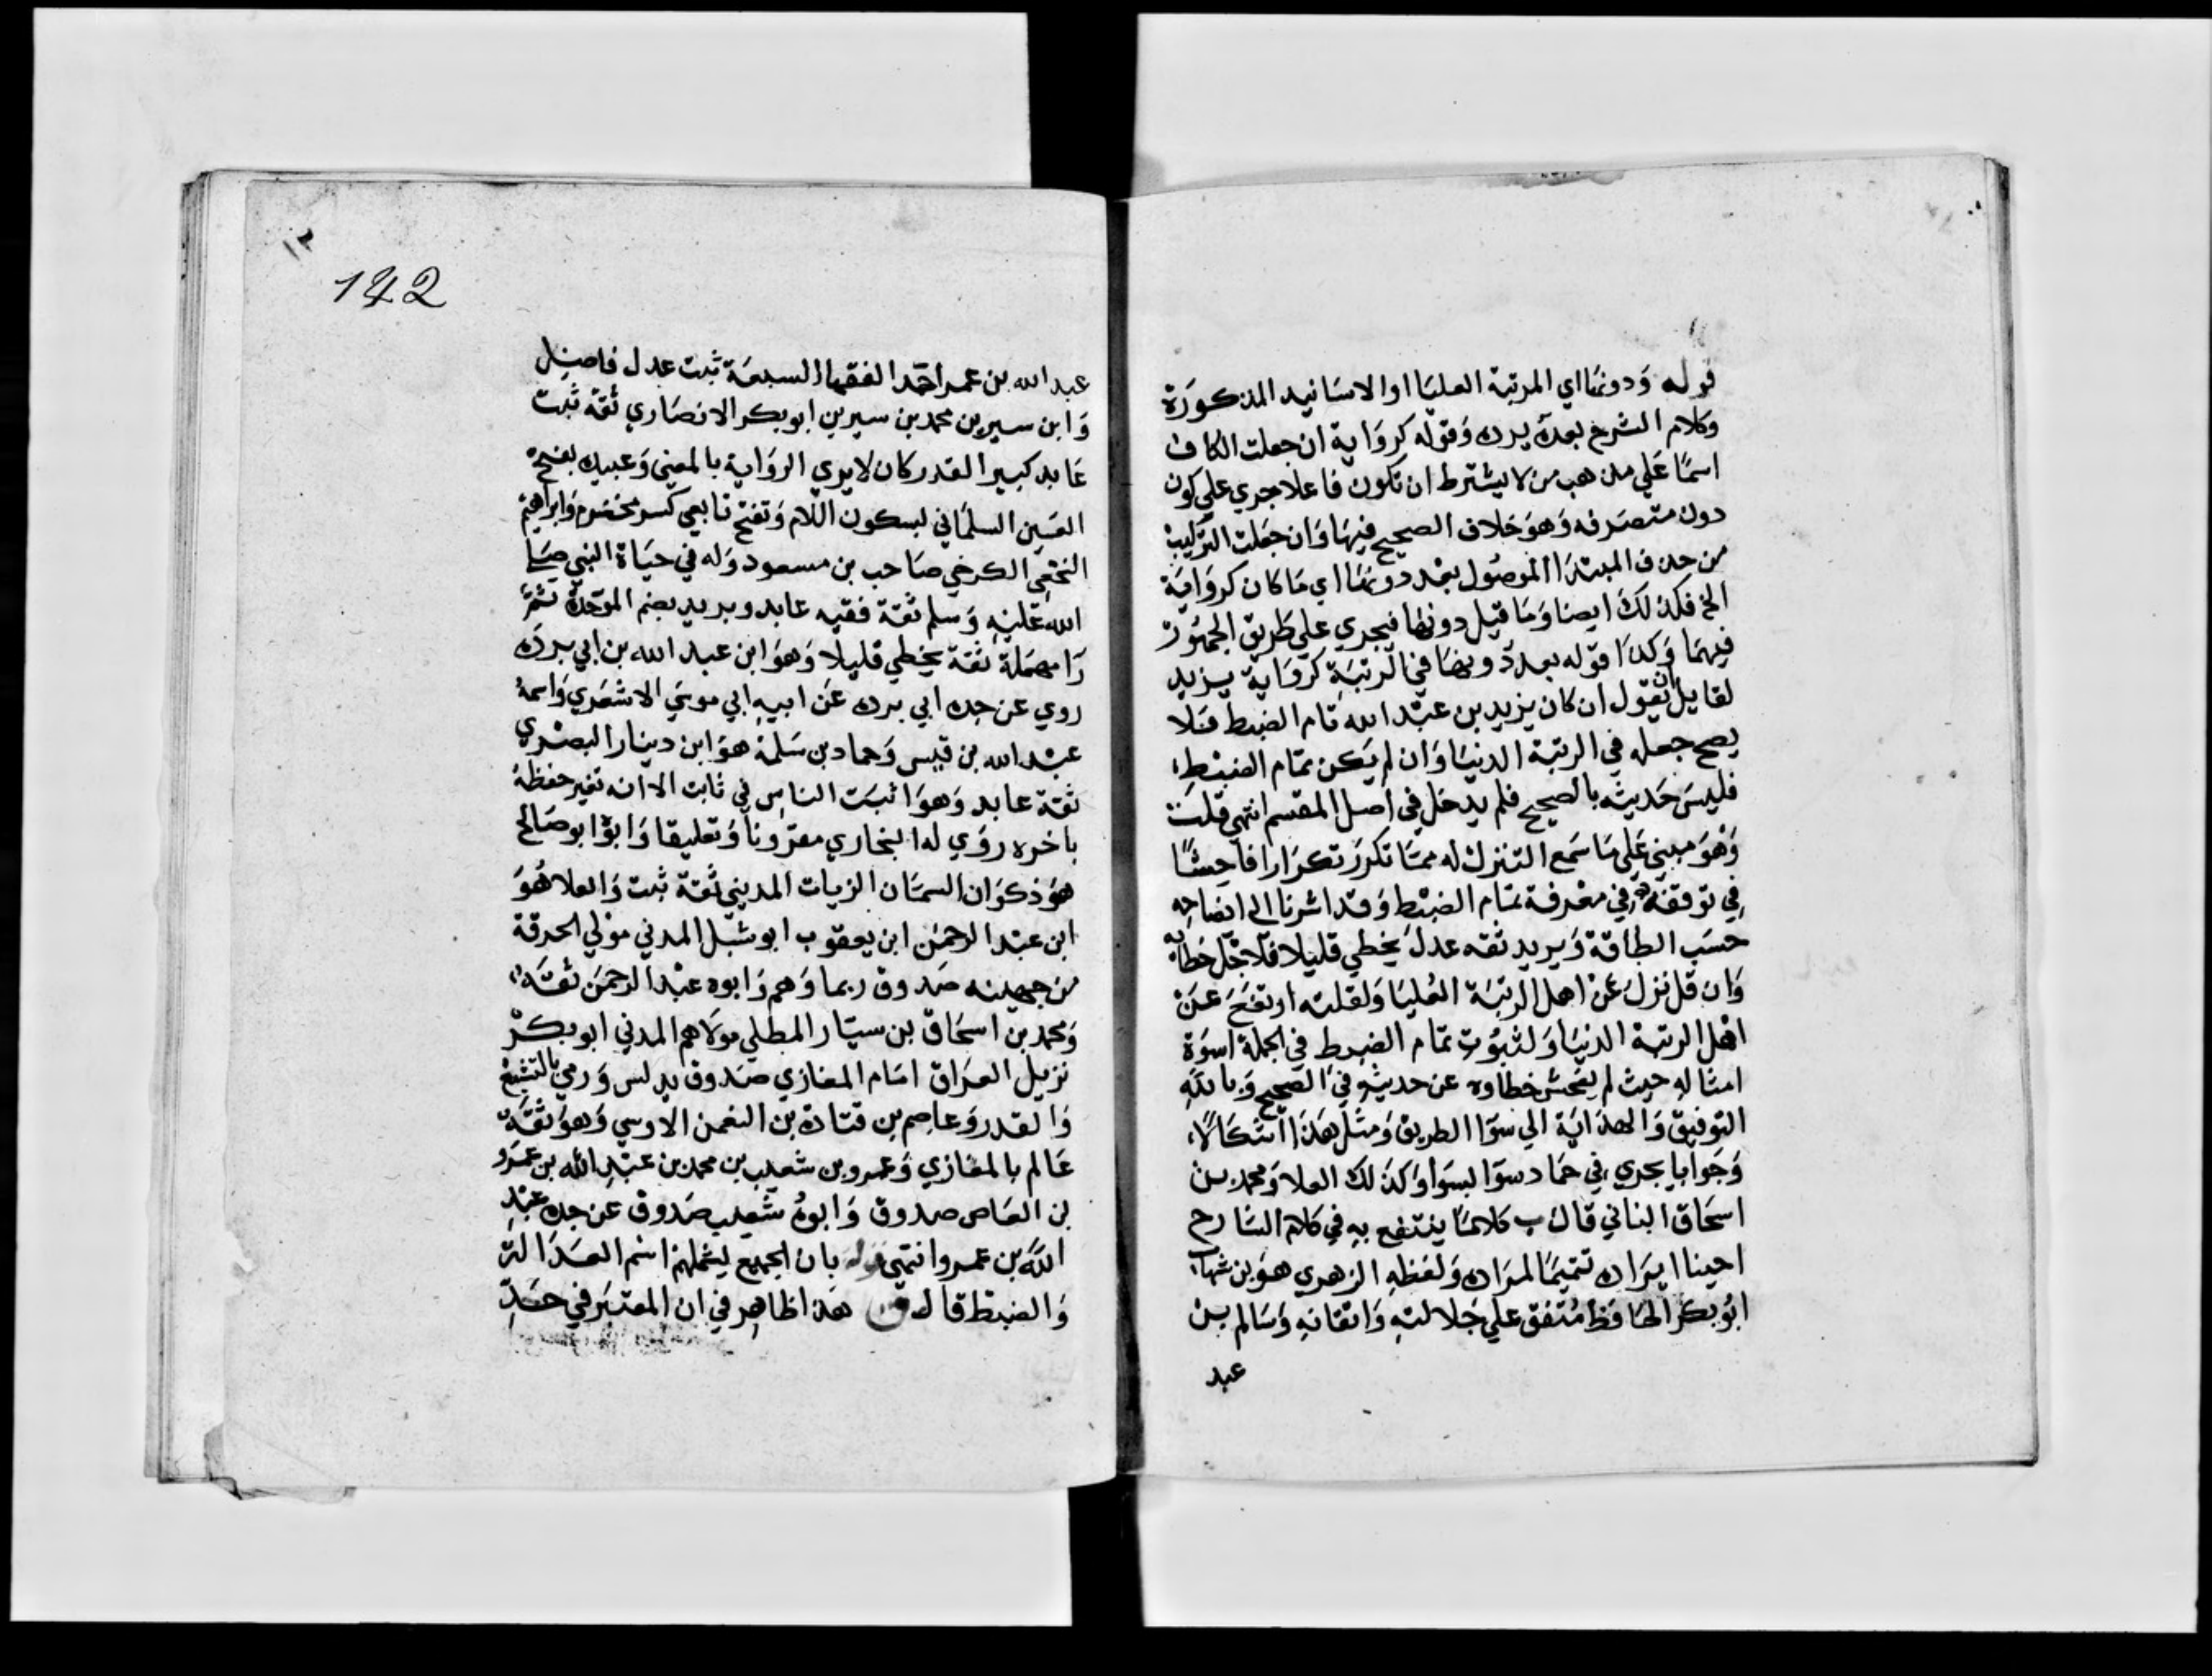 قوله ودونها اي المرتبة العليا او الاسانيد المذكورة
وكلام الشرح بعده يرده وقوله كرواية ان جعلت الكاف
اسمًا علي مذهب من لا يشترط ان تكون فاعلا جري علي كون
دون متصرفه وهو خلاف الصحيح فيها وان جعلت التركيب
من حذف المبتدا الموصول بعد دونها اي ما كان كرواية
الخ فكذلك ايضا وما قيل دونها فيجري علي طريق الجمهور
فيهما وكذا قوله بعد دونها في الرتبة كرواية يزيد
لقايل ان يقول ان كان يزيد بن عبد الله تام الضبط فلا
يصح جعله في الرتبة الدنيا وان لم يكن تمام الضبط
فليس حديثه بالصحيح فلم يدخل في اصل المقسم انتهي قلت
وهو مبني علي ما سمع التنزل له مما تكرر تكرارا فاحشًا
في توقفه في معرفة تمام الضبط وقد اشرنا الي ايضاحه
حسب الطاقة ويريد ثقه عدل يخطي قليلا فلاجل خطايه
وان قل نزل عن اهل الرتبة العليا ولقلته ارتفع عن
اهل الرتبة الدنيا ولثبوت تمام الضبط في الجملة اسوة
امثاله حيث لم يفحش خطاوه عن حديثه في الصحيح وبالله
التوفيق والهداية الي سوا الطريق ومثل هذا اشكالًا
وجوابا يجري في حماد سوا بسوا وكذلك العلا ومحمد بن
اسحاق البناني قال ب كلامًا ينتفع به في كلام الشارح
احببنا ايراده تتميمًا لمراده ولفظه الزهري هو بن شهاب
ابو بكر الحافظ متفق علي جلالته واتقانه وسالم بن
عبد
١٢
142
عبد الله بن عمر احد الفقها السبعة ثبت عدل فاضل
وابن سيرين محمد بن سيرين ابو بكر الانصاري ثقة ثبت
عابد كبير القدر كان لا يري الرواية بالمعني وعبيده بفتح
العين السلماني بسكون اللام وتفتح تابعي كبير مخضرم وابراهيم
النخعي الكرخي صاحب بن مسعود وله في حياة النبي صلي
الله عليه وسلم ثقة فقيه عابد وبريد بضم الموحدة ثم
را مهملة ثقة يخطي قليلا وهو ابن عبد الله بن ابي برده
روي عن جده ابي برده عن ابيه ابي موسي الاشعري واسمه
عبد الله بن قيس وحماد بن سلمة هو ابن دينار البصري
ثقة عابد وهو اثبت الناس في ثابت الا انه تغير حفظه
باخره روي له البخاري مقرونا وتعليقا وابوا ابو صالح
هو ذكوان السمان الزيات المديني ثقة ثبت والعلا هو
ابن عبد الرحمن ابن يعقوب ابو شبل المدني مولي الحرقة
من جهينه صدوق ربما وهم وابوه عبد الرحمن ثقة
ومحمد بن اسحاق بن سيار المطلبي مولاهم المدني ابو بكر
نزيل العراق امام المغازي صدوق يدلس ورمي بالتشيع
والقدر وعاصم بن قتادة بن النعمن الاوسي وهو ثقة
عالم بالمغازي وعمرو بن شعيب بن محمد بن عبد الله بن عمرو
بن العاص صدوق وابوه شعيب صدوق عن جده عبد
الله بن عمرو انتهي قوله بان الجميع يشملهم اسم العدالة
والضبط قال ق هذا ظاهر في ان المعتبر في حد